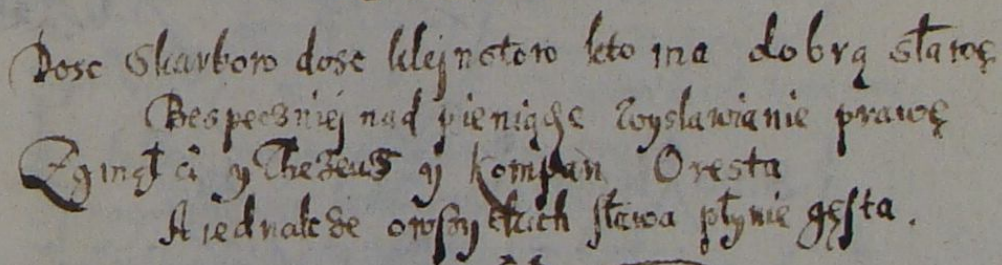 Dosc Skarbow dosc klejnotow kto ma dobrą sławę
Bespeczniej nad pieniądze wysławianie prawę
Zginął ci y Thezeus y Kompan Oresta
A iednakże o wszytkich sława płynie gęsta.